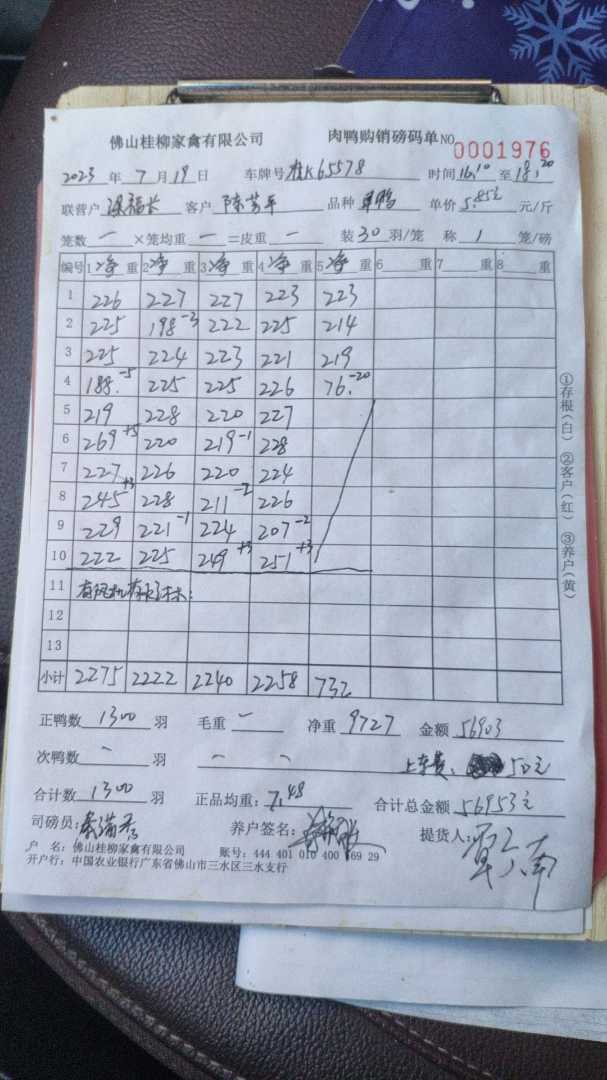 佛山桂柳家禽有限公司 肉鸭购销磅码单 NO 0001976
2023 年 7 月 19 日 车牌号 桂K65578 时间 16:10 至 18:20
联营户 客户 陈芳平 品种 单鸭 单价 5.85元 元/斤
笼数 一 ×笼均重 一 =皮重 一 装 30 羽/笼 称 1 笼/磅
编号 1 净 重 2 净 重 3 净 重 4 净 重 5 净 重 6 重 7 重 8 重
1 226 227 227 223 223
2 225 198-3 222 225 214
3 225 224 223 221 219
4 188.-5 225 225 226 76.-20
5 219 228 220 227
6 269+5 220 219-1 228
7 227 226 220 224
8 245+3 228 211-2 226
9 229 221-1 224 207-2
10 222 225 249+3 251+3
11
12
13
小计 2275 2222 2240 2258 732
正鸭数 1300 羽 毛重 一 净重 9727 金额 56903
次鸭数 一 羽 上车费 50元
合计数 1300 羽 正品均重: 7.48 合计总金额 56953元
司磅员: 养户签名: 提货人:
户 名: 佛山桂柳家禽有限公司 账号: 444 401 010 400 169 29
开户行: 中国农业银行广东省佛山市三水区三水支行
①存根(白) ②客户(红) ③养户(黄)